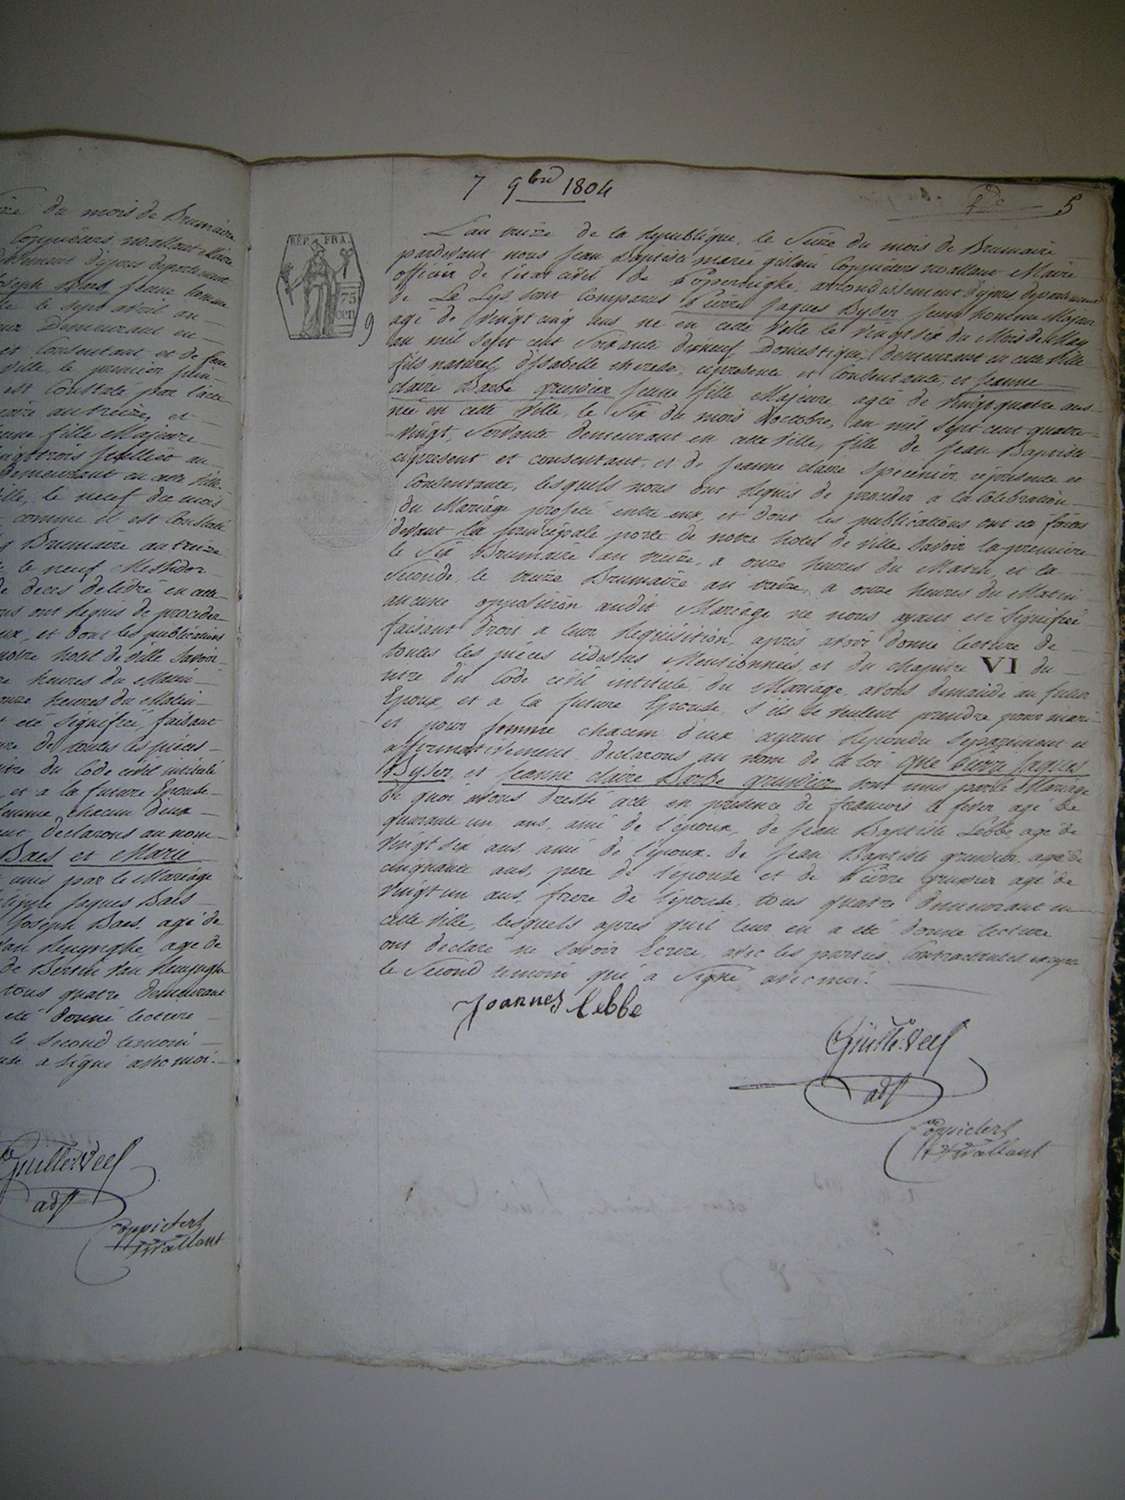 ire du mois de Brumaire
Coppieters wallant Maire
d'ypres departement
Joseph Baes jeune homme
le sept avril an
demeurant en
et Consentant et de feue
ville, le premier juin
est Constaté par l'acte
aire an treize, et
jeune fille Majeure
demeurant en cette ville
ville, le neuf du mois
comme il est Constaté
Brumaire an treize
le neuf Messidor
de deces delivré en cette
ous ont requis de proceder
eux, et dont les publications
notre hotel de ville Savoir
heures du Matin
onze heures du Matin
été signifié, faisant
ure de toutes les pièces
itre du Code civil intitulé
et a la future Epouse
femme chacun d'eux
declarons au nom
Baes et Marie
unis par le Mariage
Jaques Baes
Joseph Baes, agé de
agé de
tous quatre demeurant
été donné lecture
le Second temoin
a signé avec moi.
Guille. Veel
adjt
Coppieters
Wallant
7 9bre 1804
5
REP. FRA.
75
CPT.
9
L'an treize de la Republique, le Seize du mois de Brumaire
pardevant nous Jean Baptiste marie gislain Coppieters wallant Maire
officier de l'etat civil de Poperinghe, arrondissement d'ypres departement
de La Lys sont Comparus pierre Jaques Byser jeune homme Majeur
agé de Vingt cinq ans né en cette Ville le Vingt six du Mois de May
an mil Sept cent Soixante dixneuf Domestique, demeurant en cette Ville
fils naturel d'Isabelle therese, cipresente et Consentante, et Jeanne
claire Barbe gruwier jeune fille Majeure agée de Vingt quatre ans
née en cette Ville, le Six du mois d'octobre, an mil Sept cent quatre
Vingt, Servante demeurant en cette Ville, fille de Jean Baptiste
cipresent et consentant, et de Jeanne claire cipresente et
Consentante, lesquels nous ont Requis de proceder a la Célébration
du Mariage projeté entre eux, et dont les publications ont été faites
devant la principale porte de notre hotel de ville Savoir la premiere
le Six Brumaire an treize, a onze heures du Matin, et la
Seconde, le treize Brumaire an treize, a onze heures du Matin
aucune opposition audit Mariage ne nous ayant été Signifiée
faisant droit a leur Requisition, après avoir donné lecture de
toutes les pièces cidessus Mensionnées, et du chapitre VI du
titre du Code civil intitulé du Mariage, avons demandé au futur
Epoux et a la future Epouse, S'ils Se Veulent prendre pour mari
et pour femme chacun d'eux ayant Repondu Separement et
affirmativement, declarons au nom de la loi que pierre Jaques
Byser, et Jeanne claire Barbe gruwier sont unis par le Mariage
de quoi avons dressé acte en presence de francois agé de
quarante un ans, ami de l'époux, de Jean Baptiste Lebbe, agé de
Vingt Six ans ami de l'époux, de Jean Baptiste gruwier, agé de
cinquante ans, pere de l'épouse et de Pierre Gruwier agé de
Vingt un ans, frere de l'épouse, tous quatre demeurant en
cette Ville, lesquels apres qu'il leur en a été donné lecture
ont declaré ne savoir Ecrire, avec les parties Contractantes excepté
le Second temoin qui a Signé avec moi.
Joannes Lebbe
Guille. Veel
adjt
Coppieters
Wallant